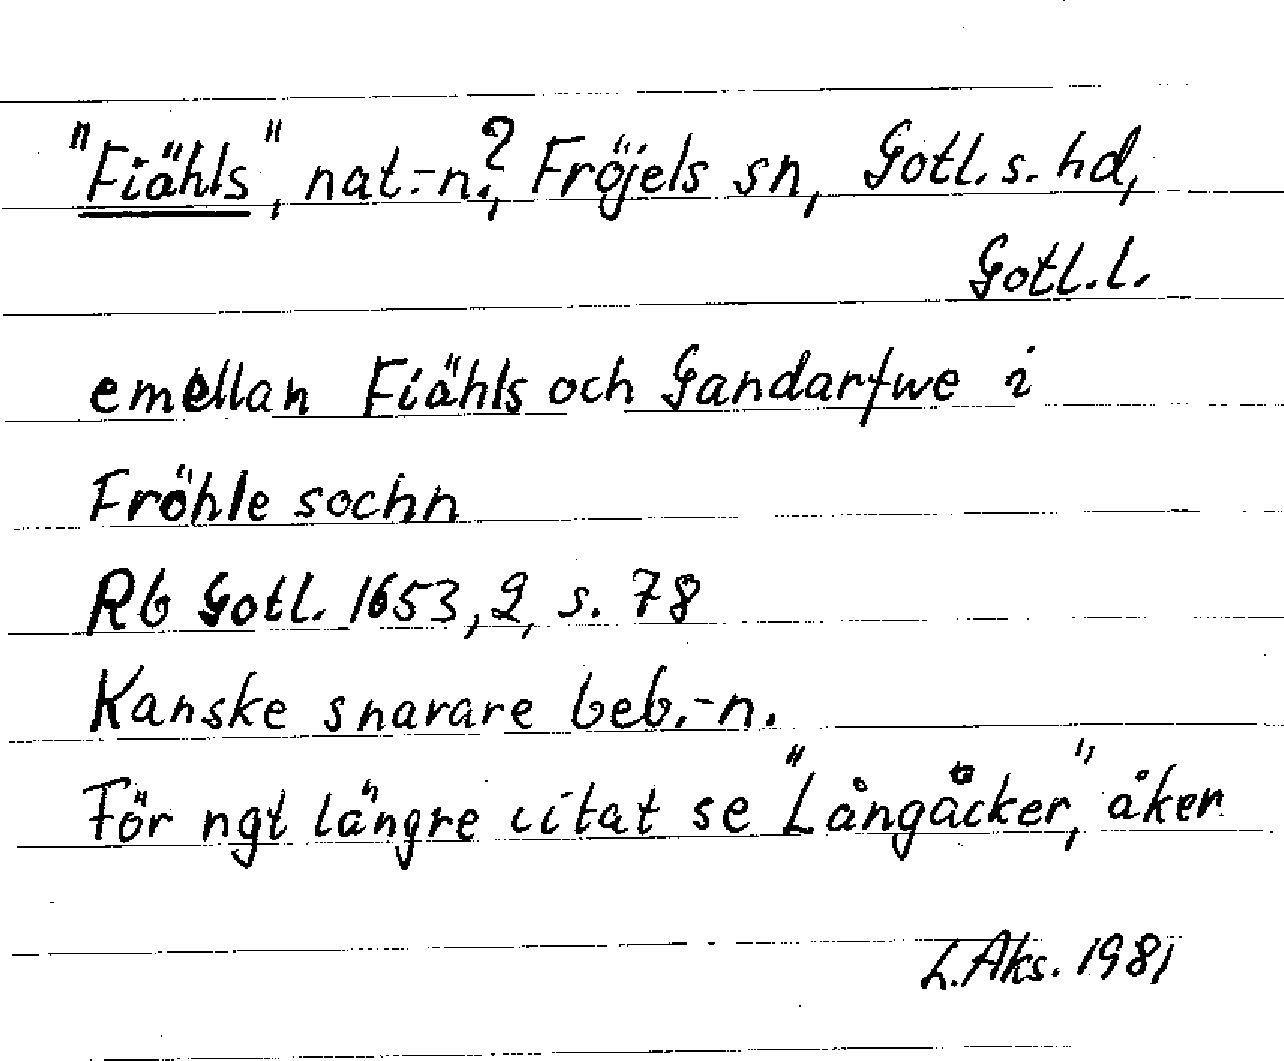 "Fiähls", nat.-n.?, Fröjels sn, Gotl. s. hd,
Gotl. l.
emellan Fiähls och Gandarfwe i
Fröhle sochn
Rb Gotl. 1653, 2, s. 78
Kanske snarare beb.-n.
För ngt längre citat se "Långåcker", åker
L. Aks. 1981